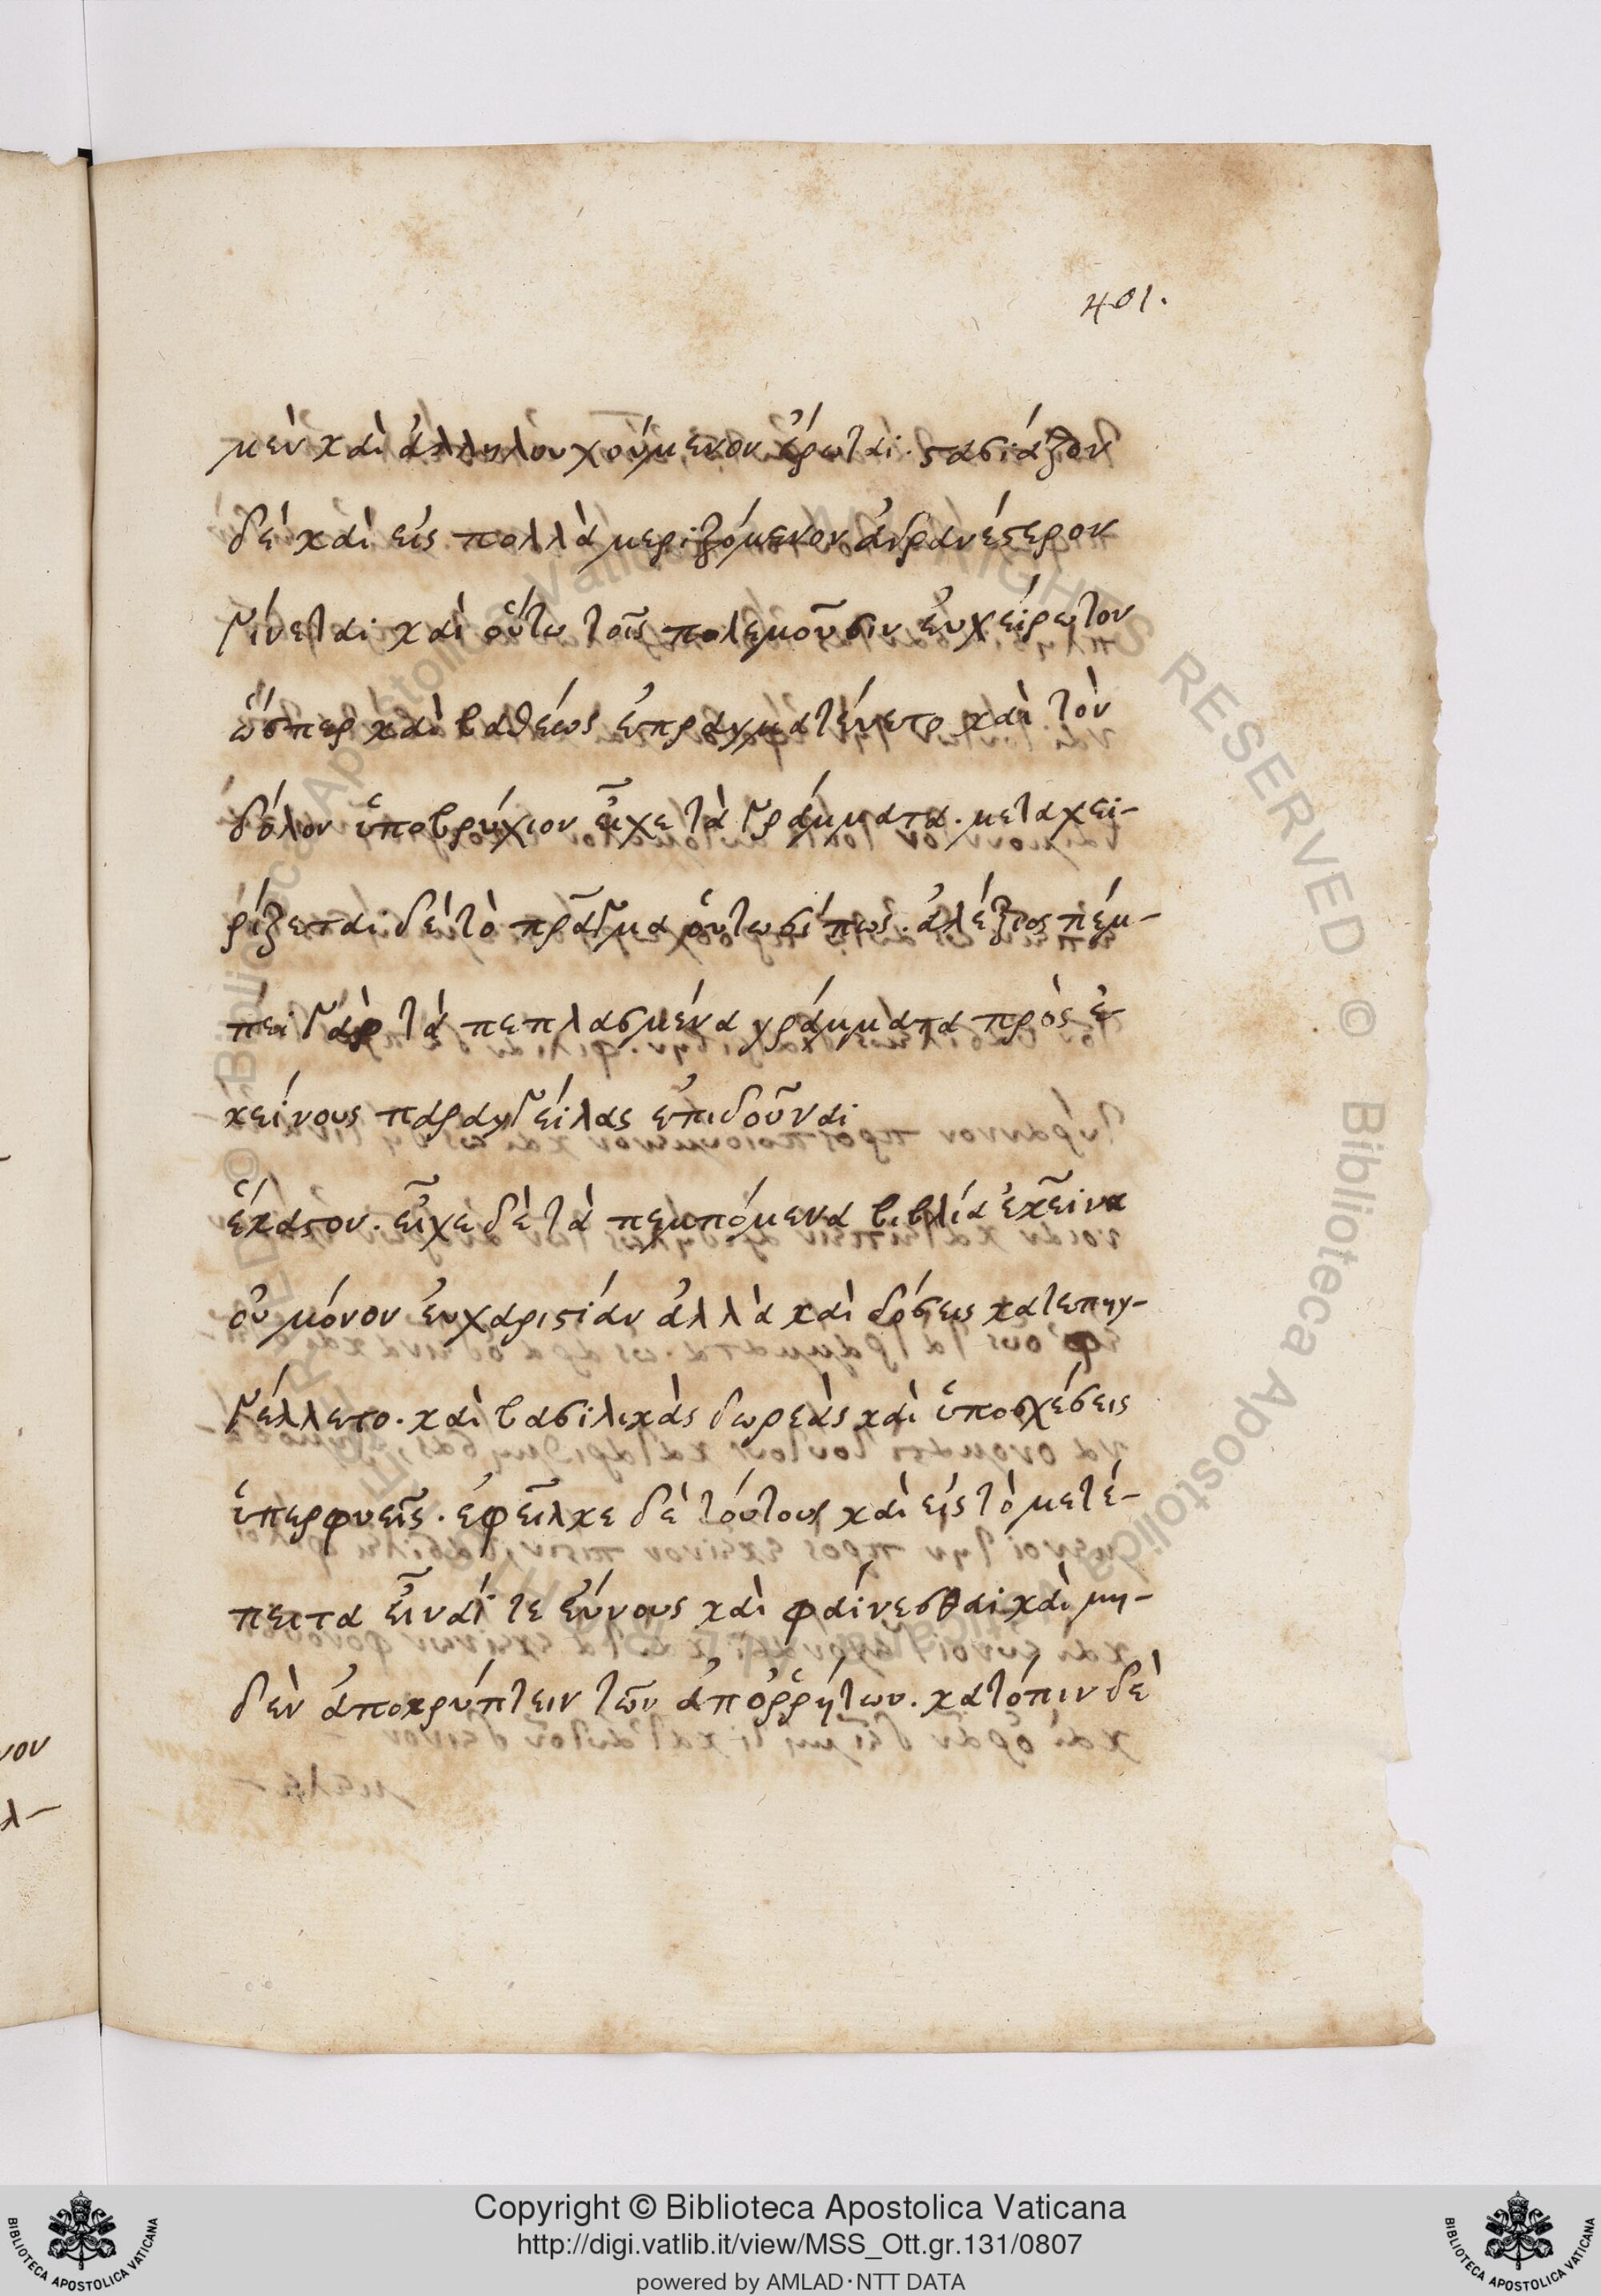 401.
μὲν καὶ ἀλληλουχούμενον ἔρωται. στασιάζον
δὲ καὶ εἰς πολλὰ μεριζόμενον ἀδρανέστερον
γίνεται καὶ οὕτω τοῖς πολεμοῦσιν εὐχείρωτον
ὥσπερ καὶ βαθέως ἐπραγματεύετο καὶ τὸν
δόλον ὑποβρύχιον εἶχε τὰ γράμματα. μεταχει-
ρίζεται δὲ τὸ πρᾶγμα οὑτωσί πως. ἀλέξιος πέμ-
πει γὰρ τὰ πεπλασμένα γράμματα πρὸς ἐ-
κείνους παραγγείλας ἐπιδοῦναι
ἕκαστον. εἶχε δὲ τὰ πεμπόμενα βιβλία ἐκεῖνα
οὐ μόνον εὐχαριστίαν ἀλλὰ καὶ δόσεις κατεπηγ-
γέλλετο. καὶ βασιλικὰς δωρεὰς καὶ ὑποσχέσεις
ὑπερφυεῖς. ἐφεῖλκε δὲ τούτους καὶ εἰς τὸ μετέ-
πειτα εἶναί τε εὔνους καὶ φαίνεσθαι καὶ μη-
δὲν ἀποκρύπτειν τῶν ἀποῤῥήτων. κατόπιν δὲ
νον
λ-
Copyright © Biblioteca Apostolica Vaticana
http://digi.vatlib.it/view/MSS_Ott.gr.131/0807
powered by AMLAD·NTT DATA